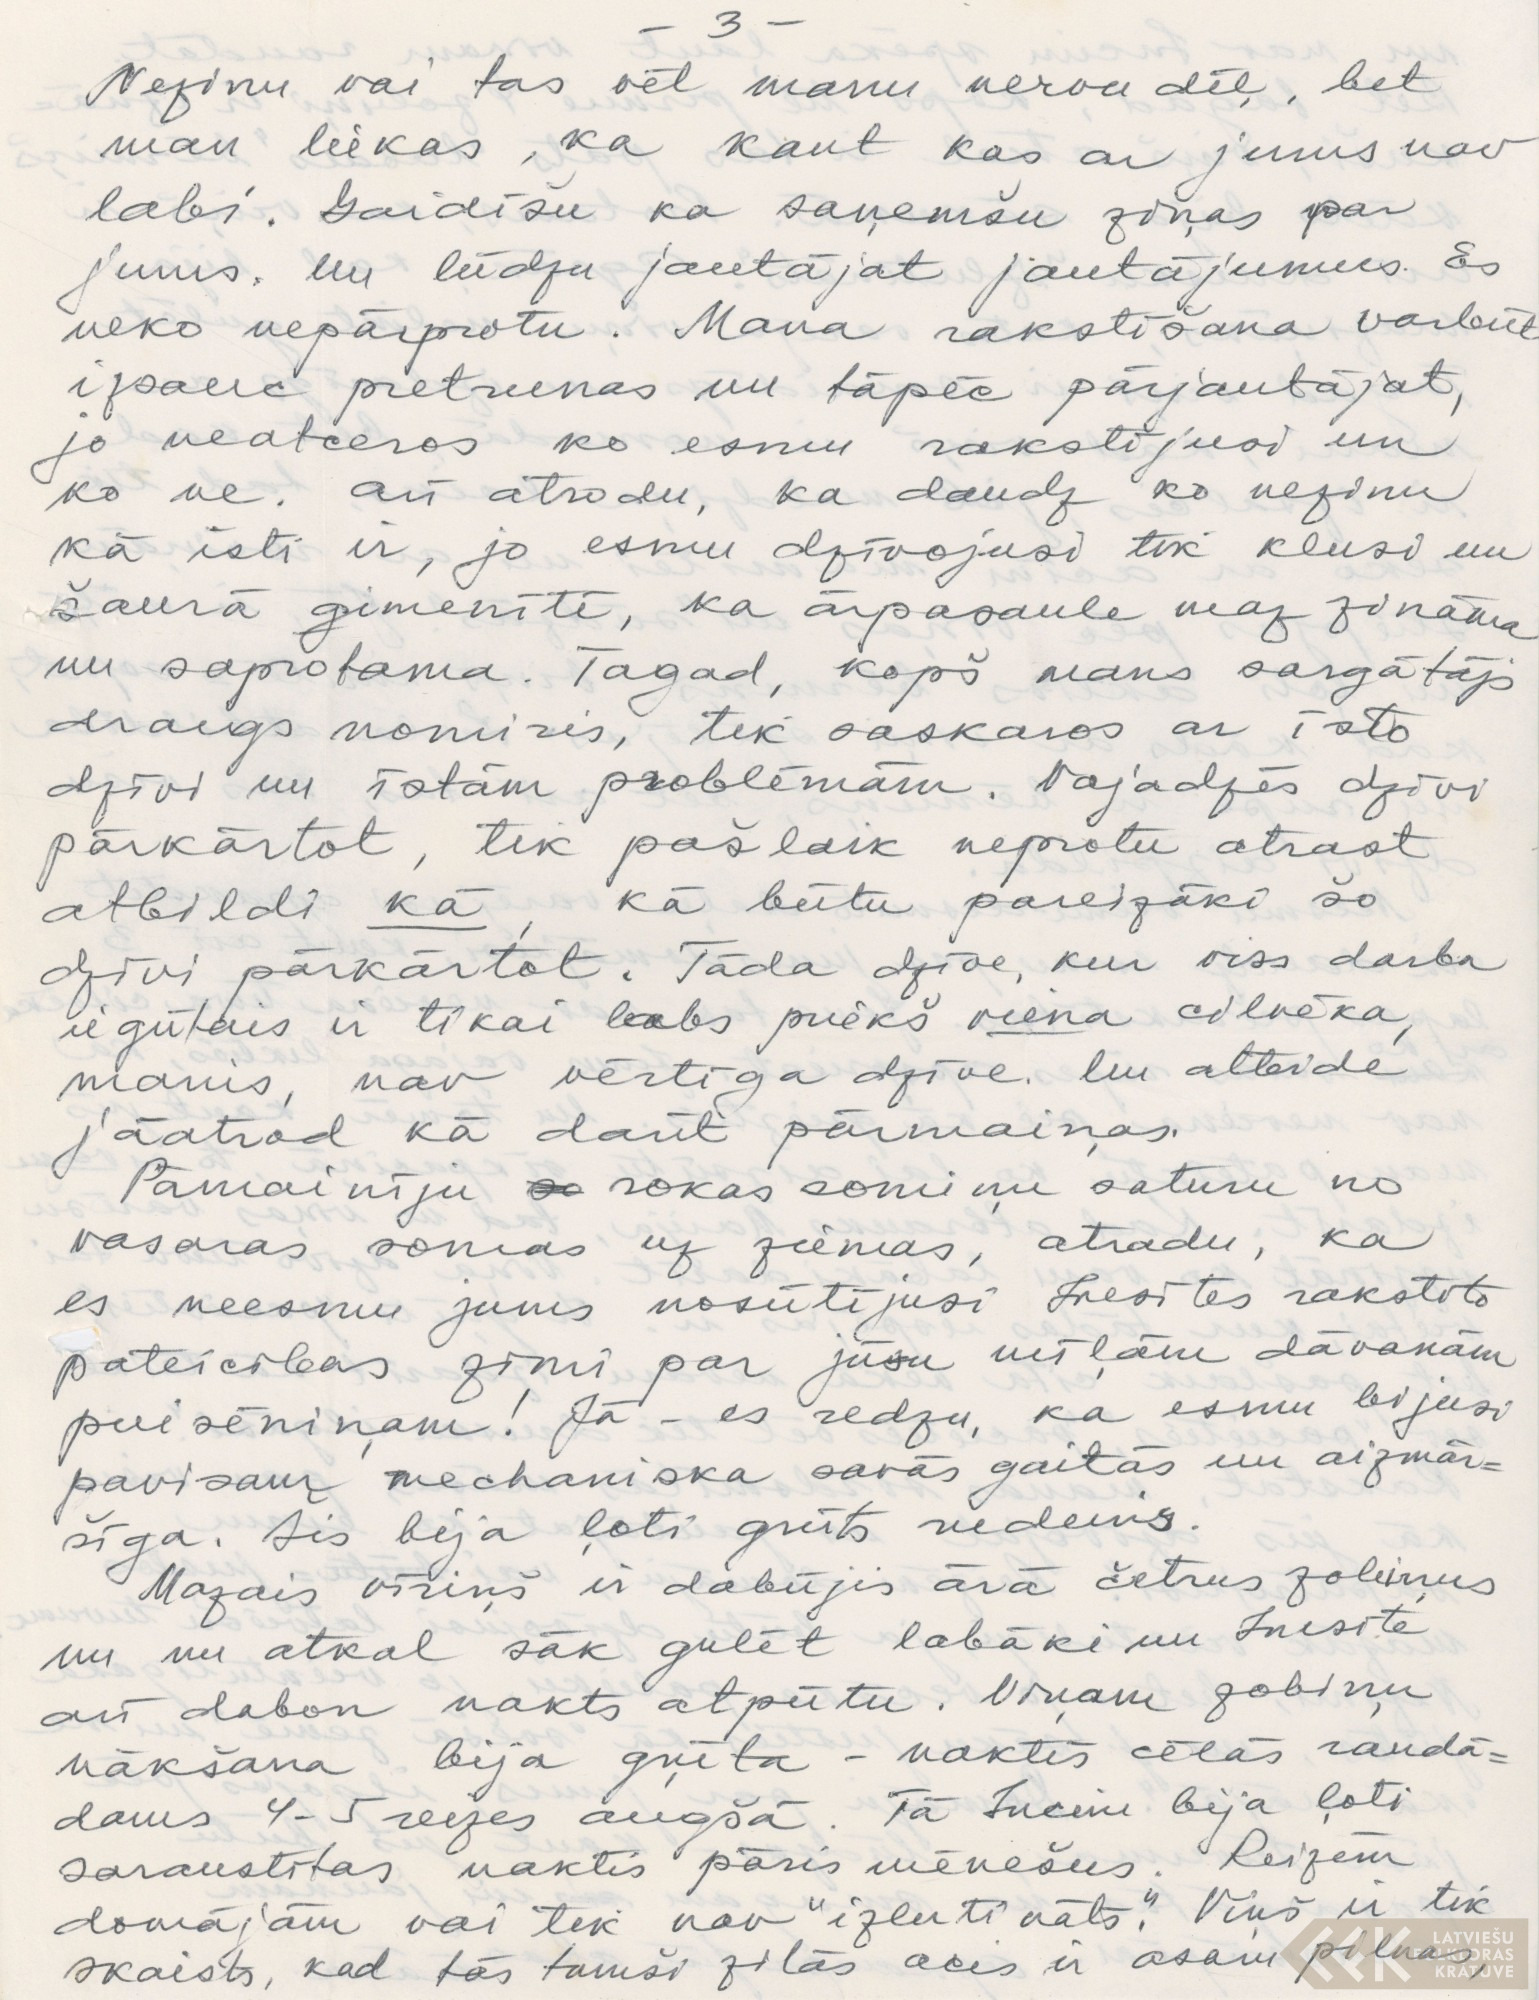 - 3 -
Nezinu vai tas vēl manu nervu dēļ, bet
man liekas, ka kaut kas ar jums nav
labi. Gaidīšu ka saņemšu ziņas par
jums. Un lūdzu jautājat jautājumus. Es
neko nepārprotu. Mana rakstīšana varbūt
izsauc pretrunas un tāpēc pārjautājat,
jo neatceros ko esmu rakstījusi un
ko ne. Arī atrodu, ka daudz ko nezinu
kā īsti ir, jo esmu dzīvojusi tik klusi un
šaurā ģimenītē, ka ārpasaule maz zināma
un saprotama. Tagad, kopš mans sargātājs
draugs nomiris, tik saskaros ar īsto
dzīvi un īstām problēmām. Vajadzēs dzīvi
pārkārtot, tik pašlaik neprotu atrast
atbildi kā, kā būtu pareizāki šo
dzīvi pārkārtot. Tāda dzīve, kur viss darba
iegūtais ir tikai labs priekš viena cilvēka,
manis, nav vērtīga dzīve. Un atbilde
jāatrod kā darīt pārmaiņas.
Pamainīju rokas somiņu saturu no
vasaras somas uz ziemas, atradu, ka
es neesmu jums nosūtījusi Inesītes rakstīto
pateicības zīmi par jūsu mīļām dāvanām
puisēniņam! Jā - es redzu, ka esmu bijusi
pavisam mechaniska savās gaitās un aizmār=
sīga. Šis bija ļoti grūts rudenis.
Mazais vīriņš ir dabūjis ārā četrus zobiņus
un nu atkal sāk gulēt labāki un Inesīte
arī dabon nakts atpūtu. Viņam zobiņu
nākšana bija grūta - naktīs cēlās raudā=
dams 4-5 reizes augšā. Tā Incim bija ļoti
saraustītas naktis pāris mēnešus. Reizēm
domājām vai tik nav "izlutināts". Viņš ir tik
skaists, kad tās tumši zilās acis ir asaru pilnas,
LATVIEŠU
FOLKLORAS
KRĀTUVE